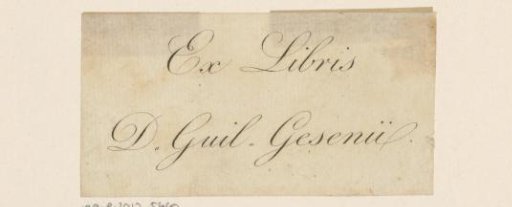 Ex Libris
D. Guil. Gesenii.